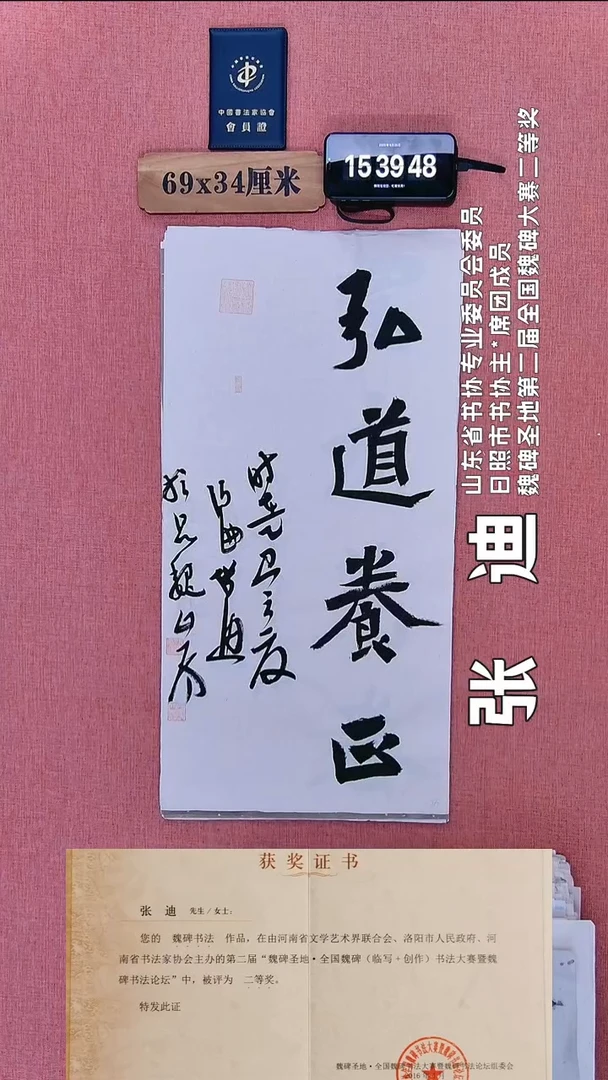 中國書法家協會
會員證
69x34厘米
15 39 48
弘道養正
山东省书协专业委员会委员
日照市书协主*席团成员
魏碑圣地第二届全国魏碑大赛二等奖
张 迪
获奖证书
张 迪 先生/女士:
您的 魏碑书法 作品,在由河南省文学艺术界联合会、洛阳市人民政府、河
南省书法家协会主办的第二届“魏碑圣地·全国魏碑(临写+创作)书法大赛暨魏
碑书法论坛”中,被评为 二等奖。
特发此证
魏碑圣地·全国魏碑书法大赛暨魏碑书法论坛组委会